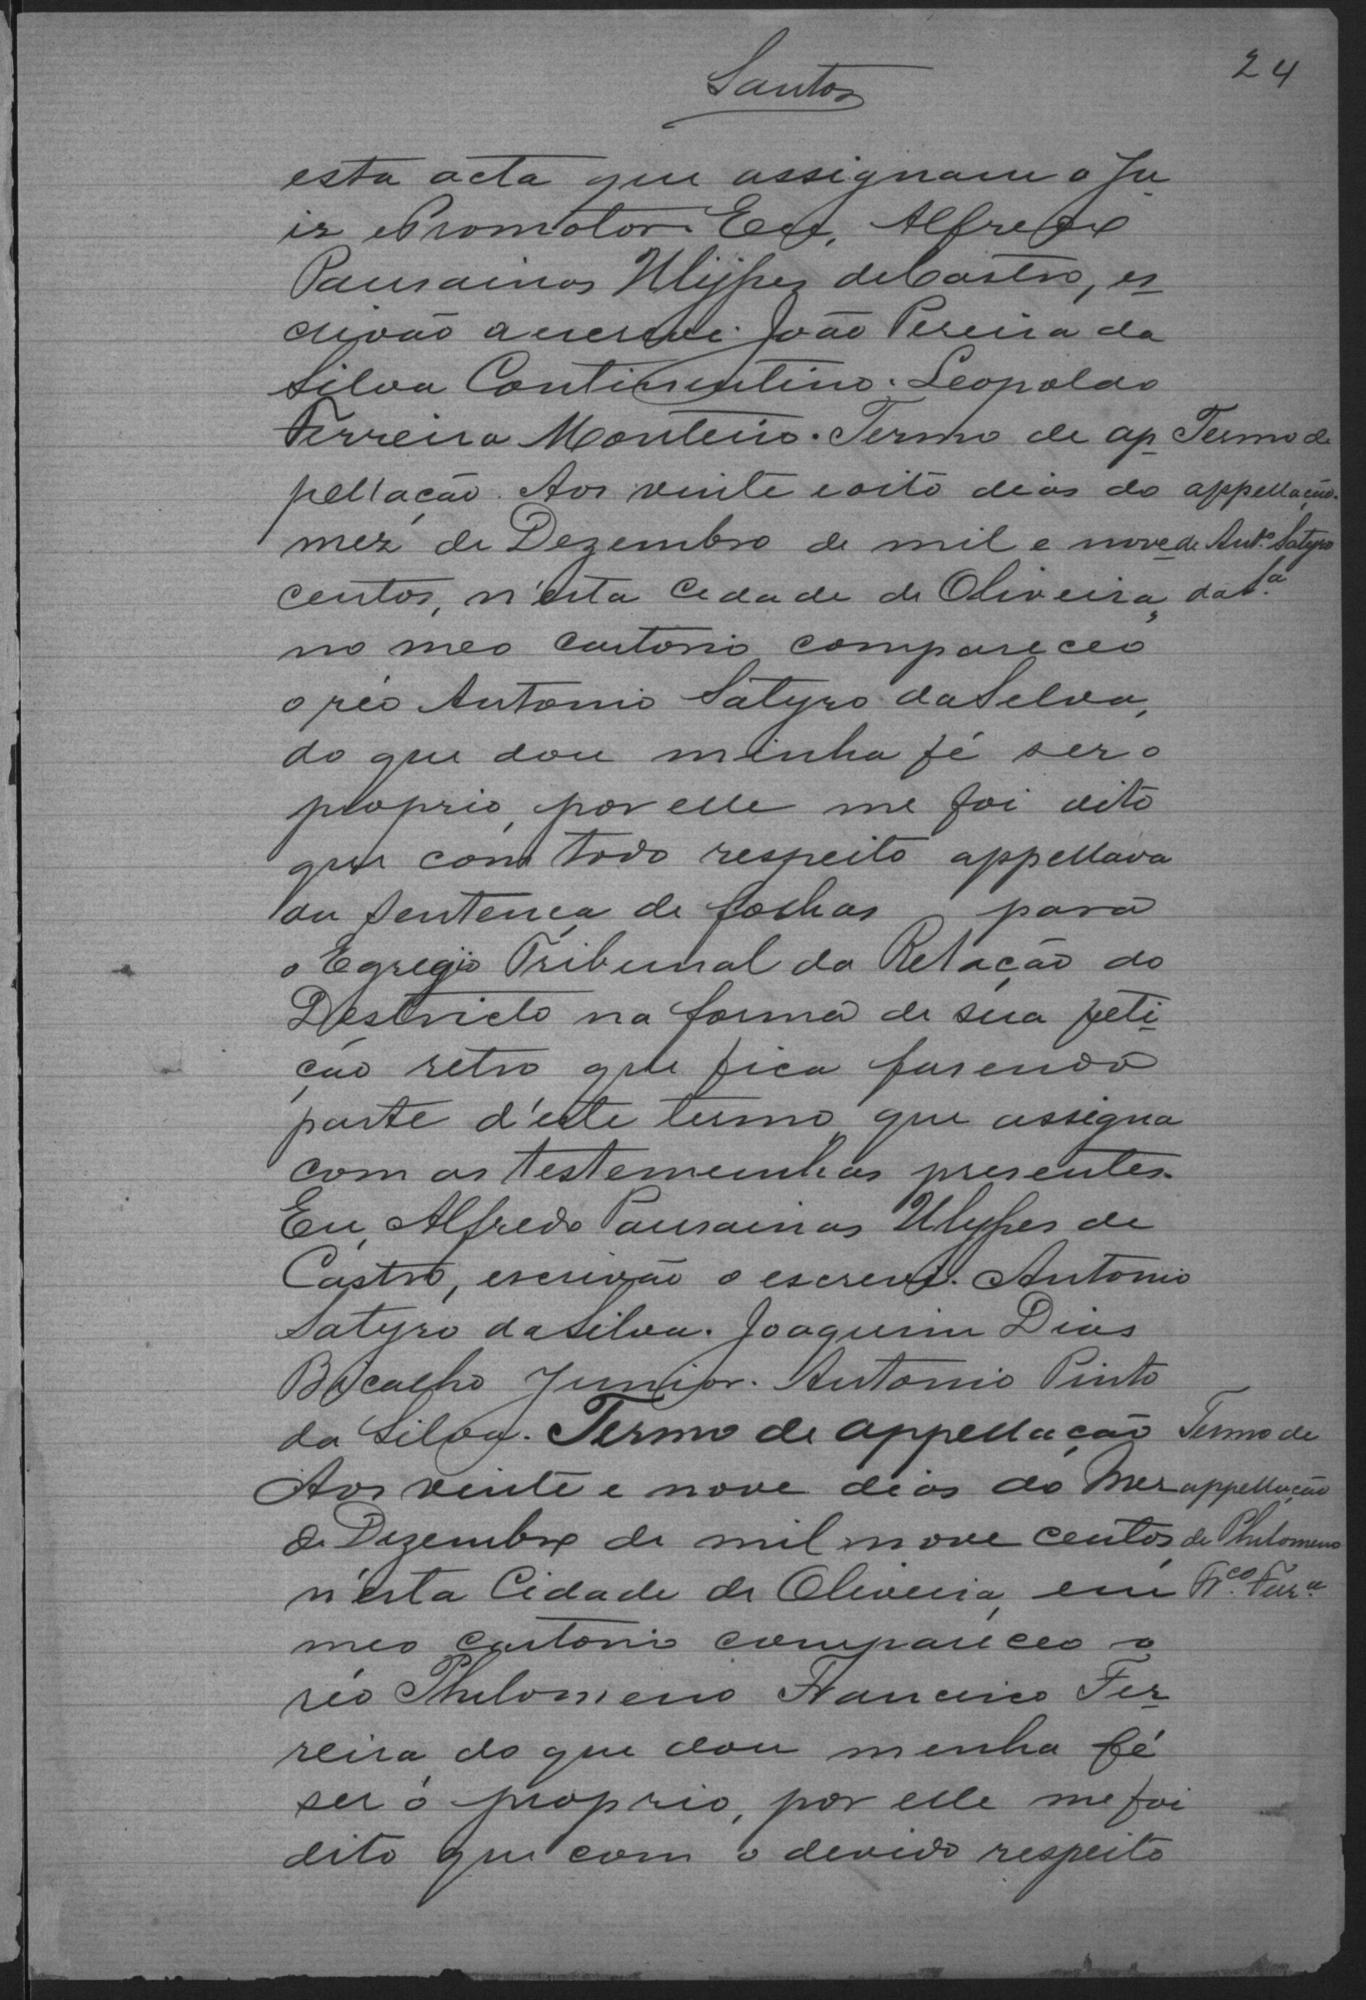 24
Santos
esta acta que assignam o Ju-
iz e Promotor. Eu, Alfredo
Pausainas Ulysses de Castro, es-
crivão a escrevi. João Pereira da
Silva Continentino. Leopoldo
Ferreira Monteiro. Termo de ap-
pellação. Aos vinte e oito dias do
mez de Dezembro de mil e nove-
centos, n'esta Cidade de Oliveira,
no meo cartorio compareceo
o réo Antonio Satyro da Silva,
do que dou minha fé ser o
proprio, por elle me foi dito
que com todo respeito appellava
da sentença de folhas para
o Egregio Tribunal da Relação do
Destricto na forma de sua peti-
ção retro que fica fasendo
parte d'este termo, que assigna
com as testemunhas presentes.
Eu, Alfredo Pausainas Ulysses de
Castro, escrivão o escrevi. Antonio
Satyro da Silva. Joaquim Dias
Bicalho Junior. Antonio Pinto
da Silva. Termo de appellação
Aos vinte e nove dias do Mez
de Dezembro de mil nove centos,
n'esta Cidade de Oliveira, em
meo cartorio compareceo o
réo Philomeno Francisco Fer-
reira, do que dou menha fé
ser o proprio, por elle me foi
dito que com o devido respeito
Termo de
appellação.
de Ant.º Satyro
da S.ª
Termo de
appellação
de Philomeno
Fr.co Ferr.ª